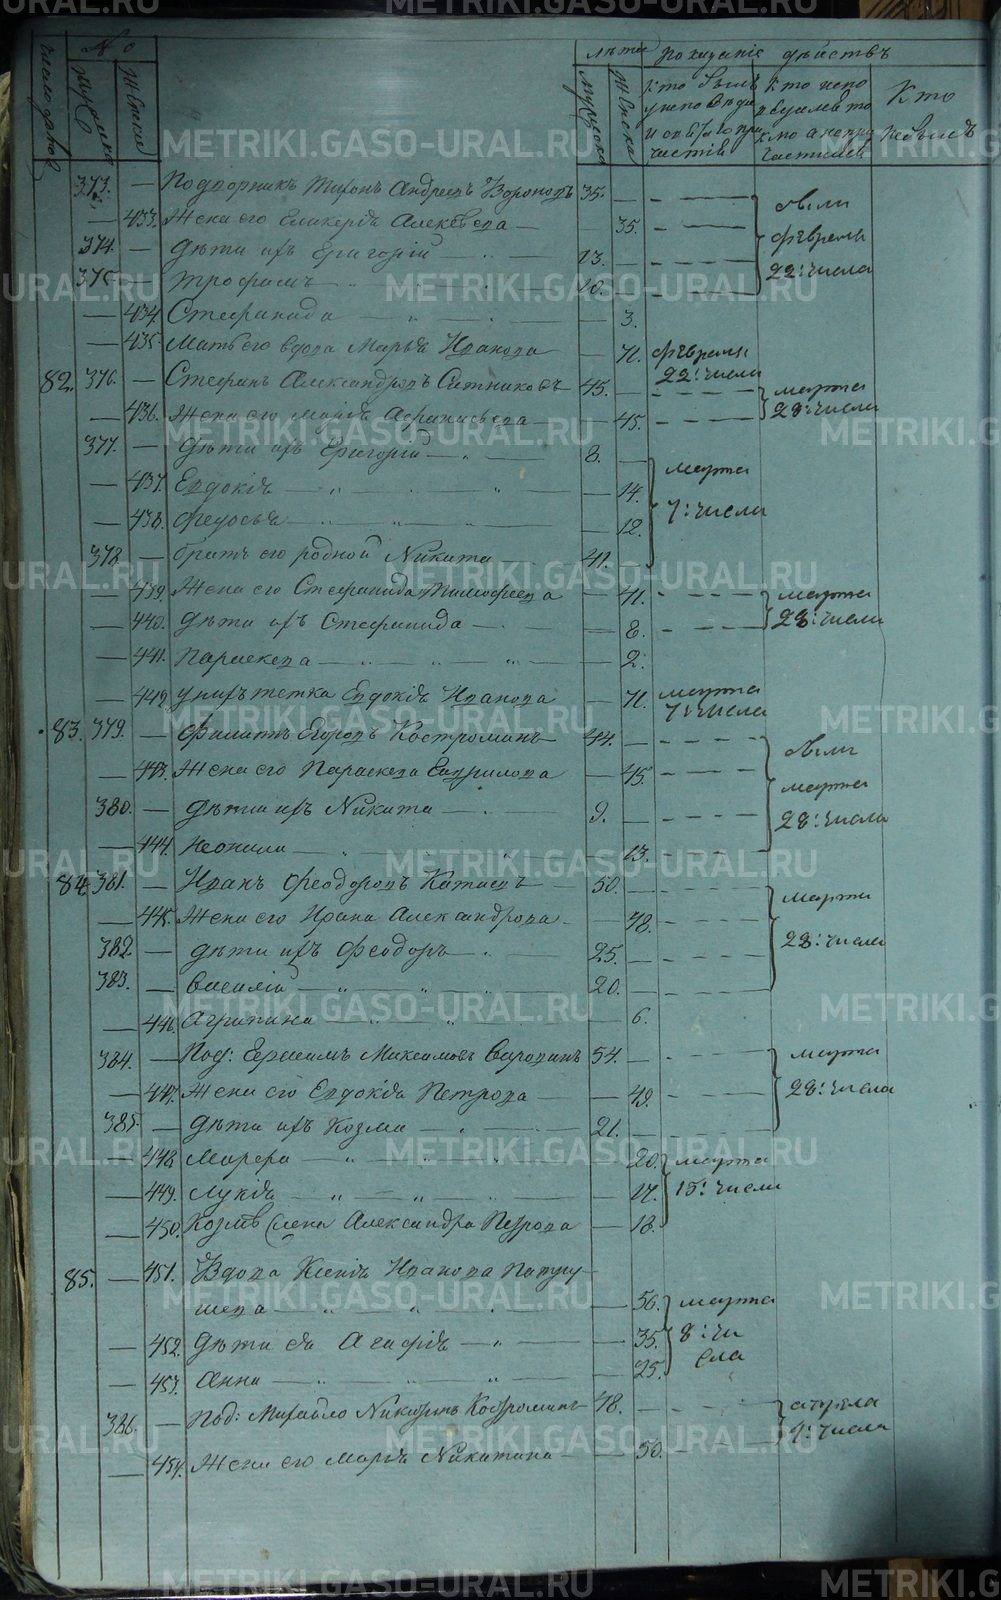 Число дворовъ
№
Мужеска
Женска
лѣта
Показаніе дѣйствъ
мужеска
Женска
Кто былъ у исповѣди и святаго причастія
Кто исповѣдался токмо а не причастился
Кто не былъ
373. — Подворникъ Тихонъ Андреевъ Вороновъ 35. были
— 433. Жена его Гликерія Алексѣева — 35.
374. — Дѣти ихъ Григорій 13. февраля
375. — Трофимъ 10. 22: числа
— 434. Стефанида 3.
— 435. Мать его вдова Марья Иванова — 71. февраля 22: числа
82. 376. — Стефанъ Александровъ Ситниковъ 45. марта
— 436. Жена его Марія Афанасьева — 45. 28: числа
377. — Дѣти ихъ Григорій 8. марта
— 437. Евдокія — 14. 7: числа
— 438. Федосья — 12.
378. — братъ его родной Никита 41.
— 439. Жена его Стефанида Тимофеева — 41. марта
— 440. Дѣти ихъ Стефанида — 8. 28: числа
— 441. Параскева — 2.
— 442. у нихъ тетка Евдокія Иванова — 71. марта 7: числа
83. 379. — Филипъ Егоровъ Костроминъ 44. были
— 443. Жена его Параскева Гаврилова — 45. марта
380. — Дѣти ихъ Никита 9. 28: числа
— 444. Неонила — 13.
84. 381. — Иванъ Феодоровъ Катаевъ 50. марта
— 445. Жена его Ирина Александрова — 48.
382. — дѣти ихъ Феодоръ 25. 28: числа
383. — Василій 20.
— 446. Агрипина — 6.
384. — Под: Герасимъ Максимовъ 54. марта
— 447. Жена его Евдокія Петрова — 49. 28: числа
385. — Дѣти ихъ Козма 21.
— 448. Марфа — 20. марта
— 449. Лукія — 17. 15: числа
— 450. Александра Петрова — 18.
85. — 451. Вдова Ксенія Иванова Патру
шева — 56. марта
— 452. Дѣти ея Агафія — 35. 8: чи
— 453. Анна — 25. сла
386. — Под: Михайло Никитинъ Костроминъ 48. апрѣля
— 454. Жена его Марія Никитина — 50. числа
METRIKI.GASO-URAL.RU